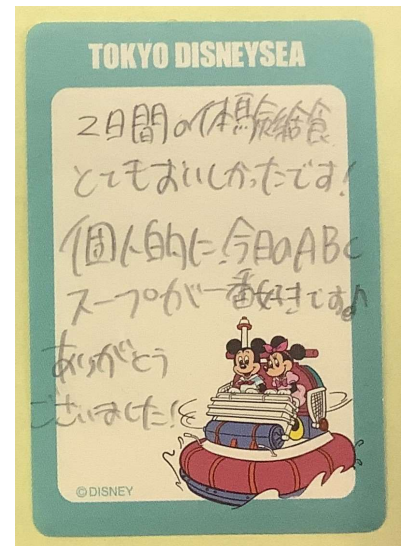 TOKYO DISNEYSEA
2日間の体験給食
とてもおいしかったです!
個人的に今日のABC
スープが一番好きです♪
ありがとう
ございました!!
©DISNEY